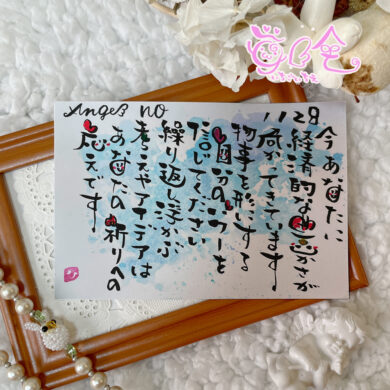 Angel NO
1128
今あなたに
経済的な豊かさが
流れてきています
物事を形にする
強いのパワーを
信じてください
繰り返し浮かぶ
考えやアイデアは
あなたの祈りへの
応えです